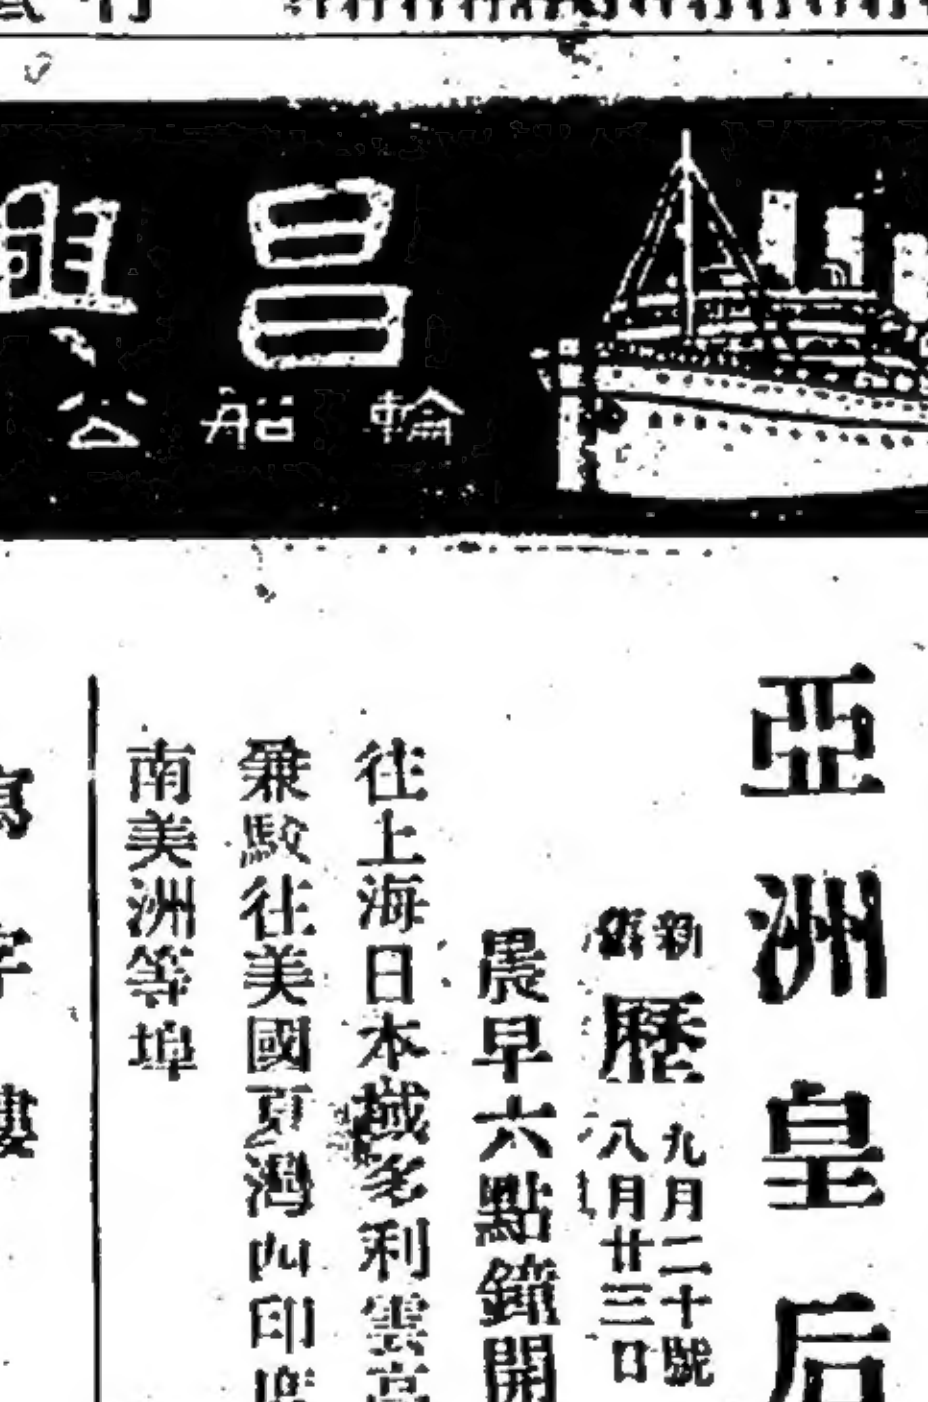 昌興
輪船公
亞洲皇后
新歷九月二十號
舊歷八月廿三日
晨早六點鐘開
往上海日本域多利雲高
兼駛往美國夏灣拿印度
南美洲等埠
寫字樓